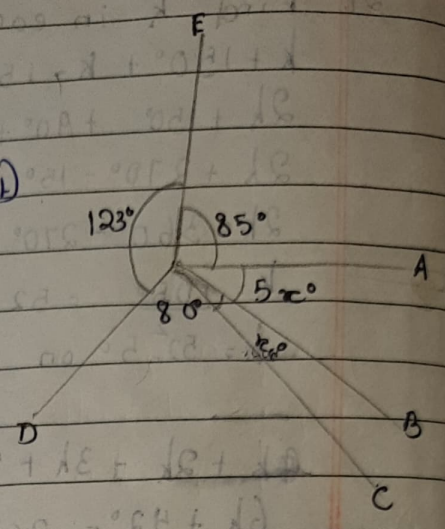 E
123°
85°
A
5x°
80°
B
D
C